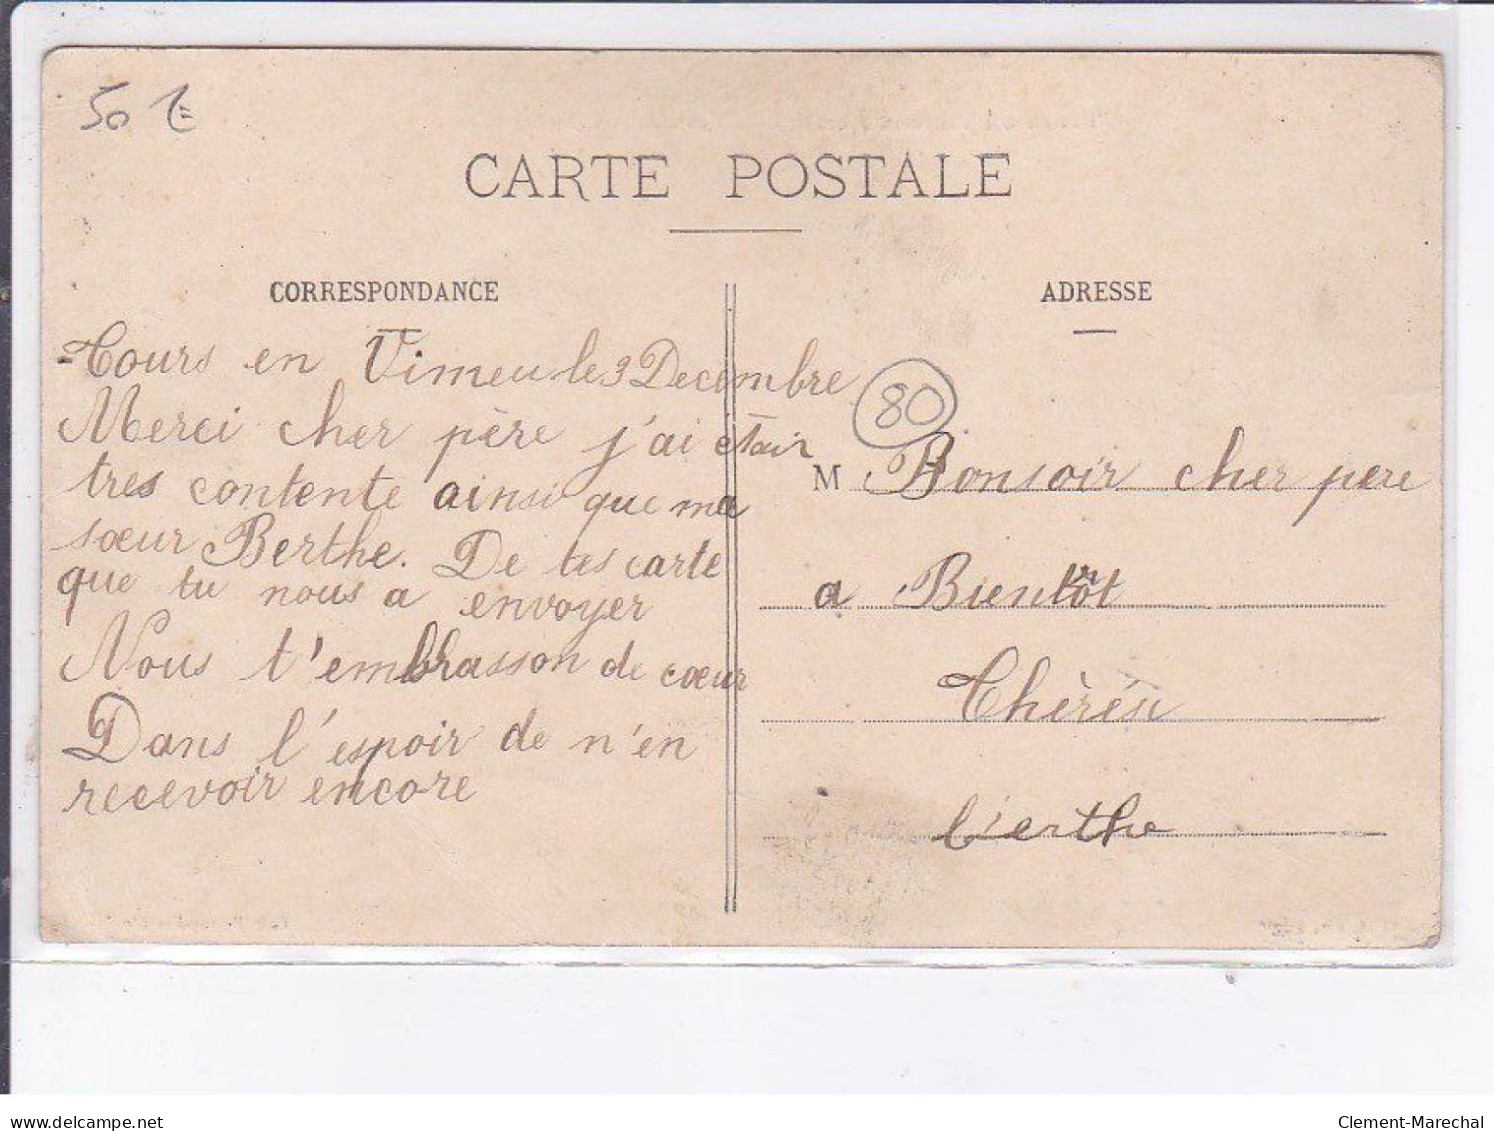 50 €
CARTE POSTALE
CORRESPONDANCE
Tours en Vimeu le 3 Decembre
Merci cher père j'ai étair
tres contente ainsi que ma
sœur Berthe. De tes carte
que tu nous a envoyer
Nous t'embrasson de cœur
Dans l'espoir de n'en
recevoir encore
ADRESSE
80
M Bonsoir cher pere
a Bientôt
Thérése
berthe
delcampe.net
Clement-Marechal